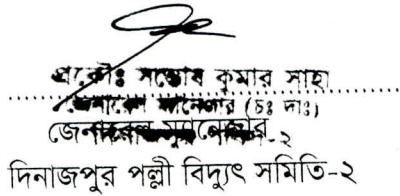 প্রকৌঃ সন্তোষ কুমার সাহা
জেনারেল ম্যানেজার (চঃ দাঃ)
জেনারেল ম্যানেজার
দিনাজপুর পল্লী বিদ্যুৎ সমিতি-২